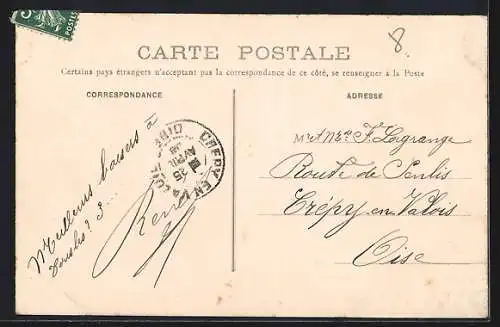 8
CARTE POSTALE
Certains pays étrangers n'acceptant pas la correspondance de ce côté, se renseigner à la Poste
CORRESPONDANCE
ADRESSE
Meilleurs baisers à
3...
René
CREPY EN
25
AVRIL
08
OISE
Mr et Mme F. Lagrange
Route de Senlis
Crépy en Valois
Oise